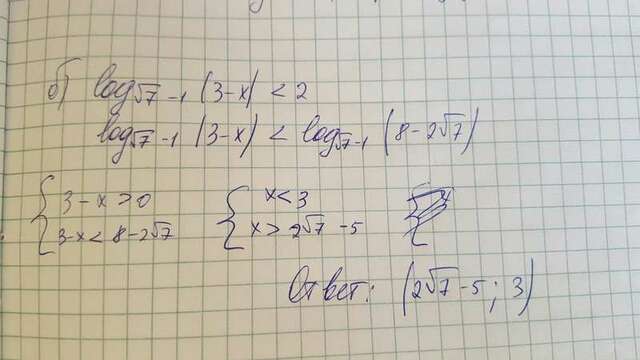 б) log√7-1 (3-x) < 2
log√7-1 (3-x) < log√7-1 (8-2√7)
{ 3-x>0 { x<3 {
3-x< 8-2√7 x> 2√7 -5
Ответ: (2√7-5; 3)